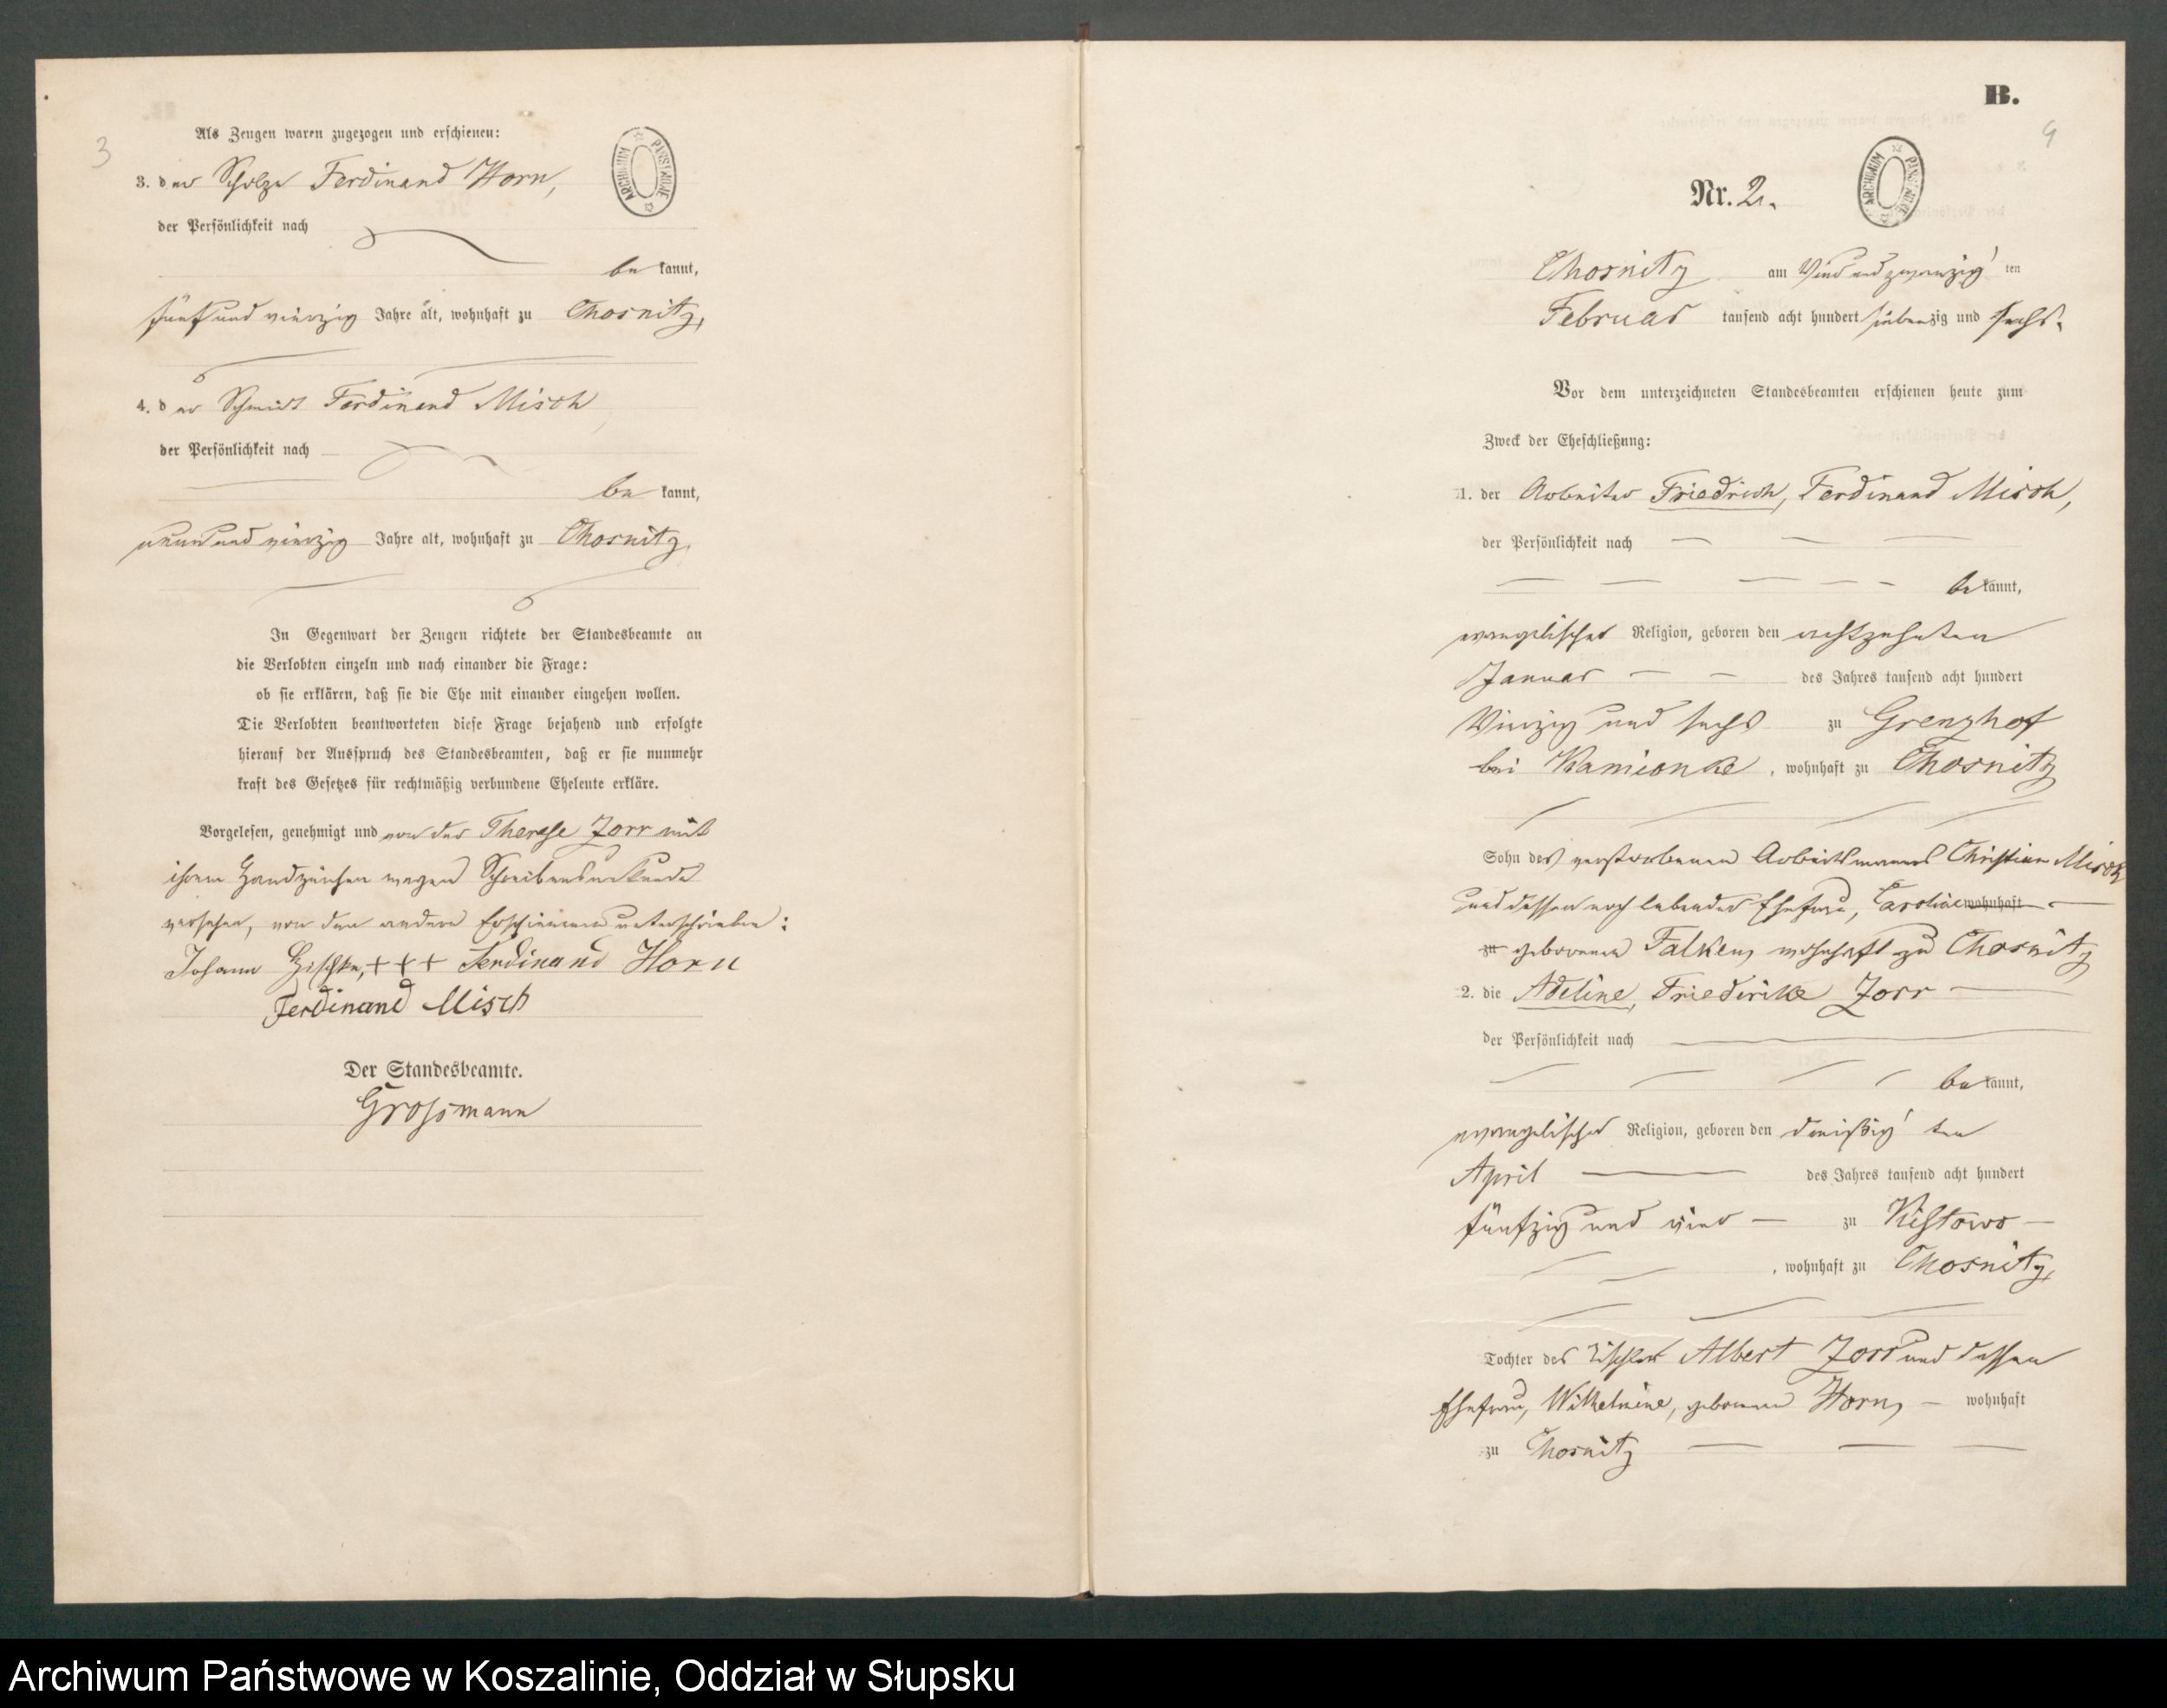 3
Als Zeugen waren zugezogen und erschienen:
3. der Schulze Ferdinand Horn,
der Persönlichkeit nach
be kannt,
fünf und vierzig Jahre alt, wohnhaft zu Chosnitz,
4. der Schmidt Ferdinand Misch
der Persönlichkeit nach
be kannt,
neun und vierzig Jahre alt, wohnhaft zu Chosnitz,
In Gegenwart der Zeugen richtete der Standesbeamte an
die Verlobten einzeln und nach einander die Frage:
ob sie erklären, daß sie die Ehe mit einander eingehen wollen.
Die Verlobten beantworteten diese Frage bejahend und erfolgte
hierauf der Ausspruch des Standesbeamten, daß er sie nunmehr
kraft des Gesetzes für rechtmäßig verbundene Eheleute erkläre.
Vorgelesen, genehmigt und von der Therese Zorr mit
ihrem Handzeichen wegen Schreibensunkunde
versehen, von den andern Erschienenen unterschrieben:
Johann +++ Ferdinand Horn
Ferdinand Misch
Der Standesbeamte.
Grossmann
ARCHIWUM PAŃSTWOWE
B.
9
Nr. 2.
ARCHIWUM PAŃSTWOWE
Chosnitz am Vier und zwanzig ten
Februar tausend acht hundert siebenzig und sechs.
Vor dem unterzeichneten Standesbeamten erschienen heute zum
Zweck der Eheschließung:
1. der Arbeiter Friedrich, Ferdinand Misch,
der Persönlichkeit nach
be kannt,
evangelischer Religion, geboren den achtzehnten
Januar des Jahres tausend acht hundert
Vierzig und sechs zu Grenzhof
bei Kamionke, wohnhaft zu Chosnitz
Sohn des verstorbenen Arbeitsmannes Christian Misch
und dessen noch lebender Ehefrau, Caroline wohnhaft
zu geborenen Falken, wohnhaft zu Chosnitz
2. die Adeline, Friederike Zorr
der Persönlichkeit nach
be kannt,
evangelischer Religion, geboren den dreißig ten
April des Jahres tausend acht hundert
fünfzig und vier zu Kistowo
, wohnhaft zu Chosnitz,
Tochter des Albert Zorr und dessen
Ehefrau, Wilhelmine, geborenen Horn, wohnhaft
zu Chosnitz
Archiwum Państwowe w Koszalinie, Oddział w Słupsku